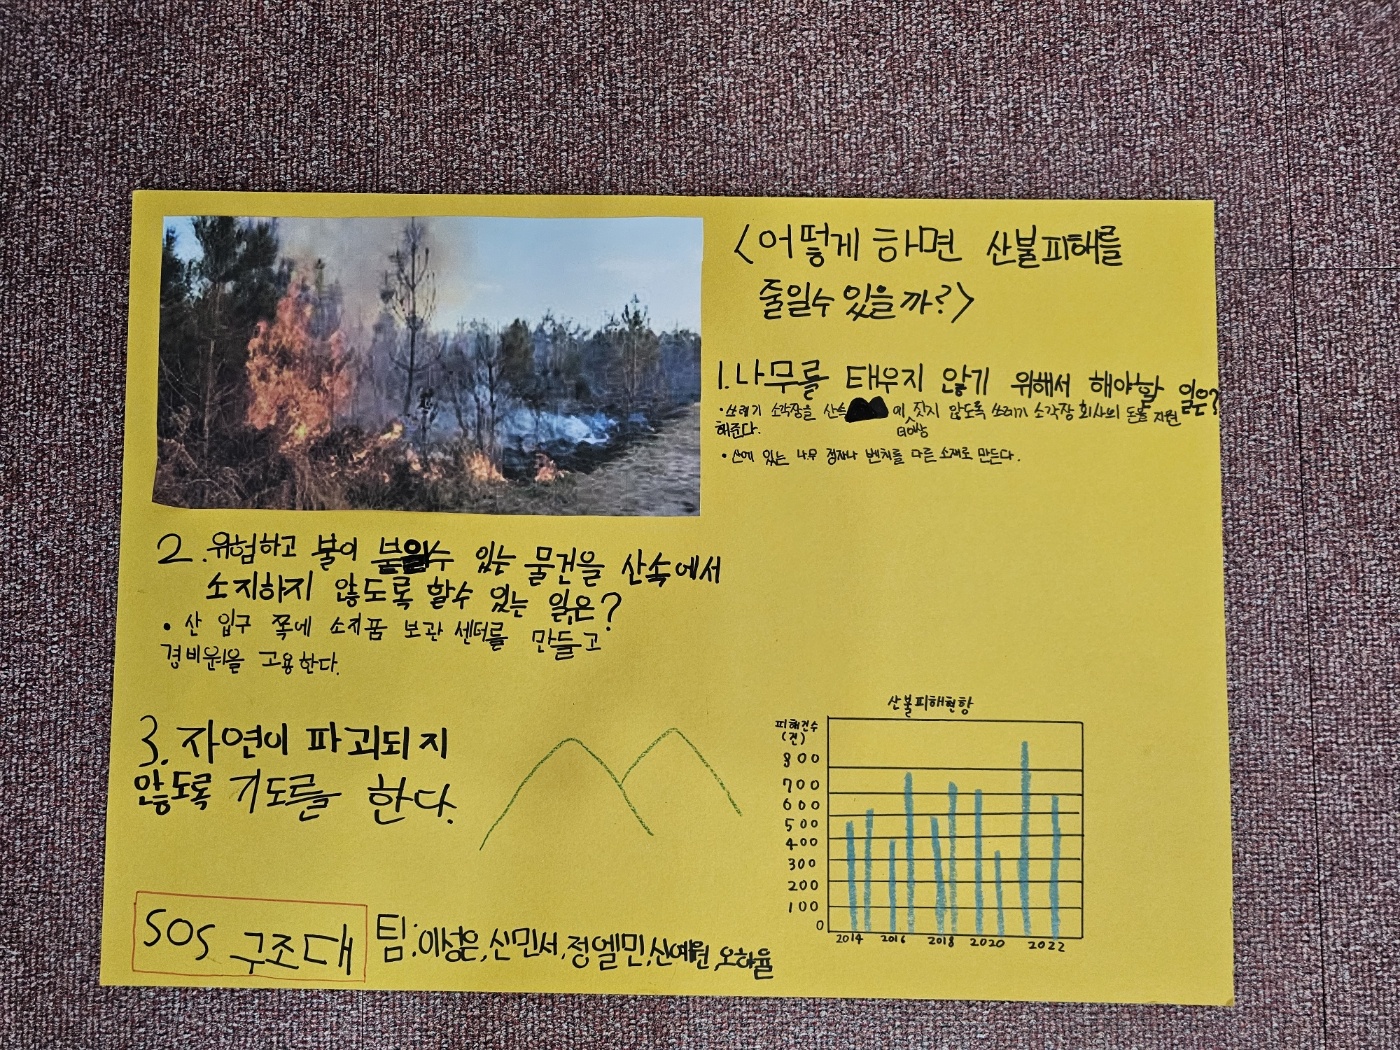 <어떻게 하면 산불피해를
줄일수 있을까?>
1.나무를 태우지 않기 위해서 해야할 일은?
•쓰레기 소각장을 산속에 짓지 않도록 쓰레기 소각장 회사의 돈을 지원
해준다.
•산에 있는 나무 정자나 벤치를 다른 소재로 만든다.
2.위험하고 불이 붙일수 있는 물건을 산속에서
소지하지 않도록 할수 있는 일은?
•산 입구 쪽에 소지품 보관 센터를 만들고
경비원을 고용한다.
3.자연이 파괴되지
않도록 기도를 한다.
산불피해현황
피해건수
(건)
800
700
600
500
400
300
200
100
0
2014 2016 2018 2020 2022
SOS 구조대
팀:이성은,신민서,정엘민,신예원,오하율